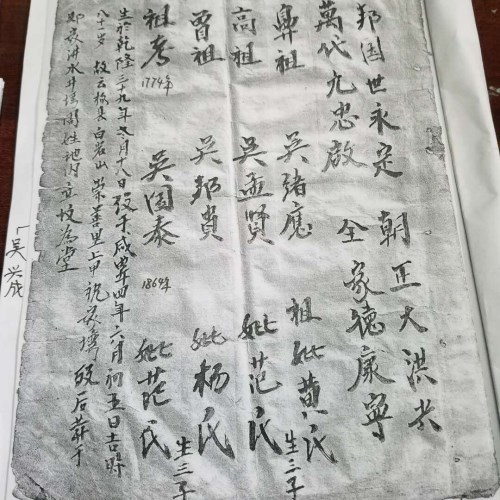 邦国世永定 朝正大洪光
萬代九忠啟 全家德康寧
鼻祖 吴緒應 祖妣黄氏 生三子
高祖 吴孟賢 妣范氏
曾祖 吴邦貴 妣杨氏 生三子
祖考 1774年 吴国泰 1864年 妣范氏
生於乾隆三十九年冬月十八日 殁于咸豐四年六月初五日吉時
八十岁 故 白岩山 崇善里上甲 殁后葬于
水井 周姓地内立坟为堂
吴兴成